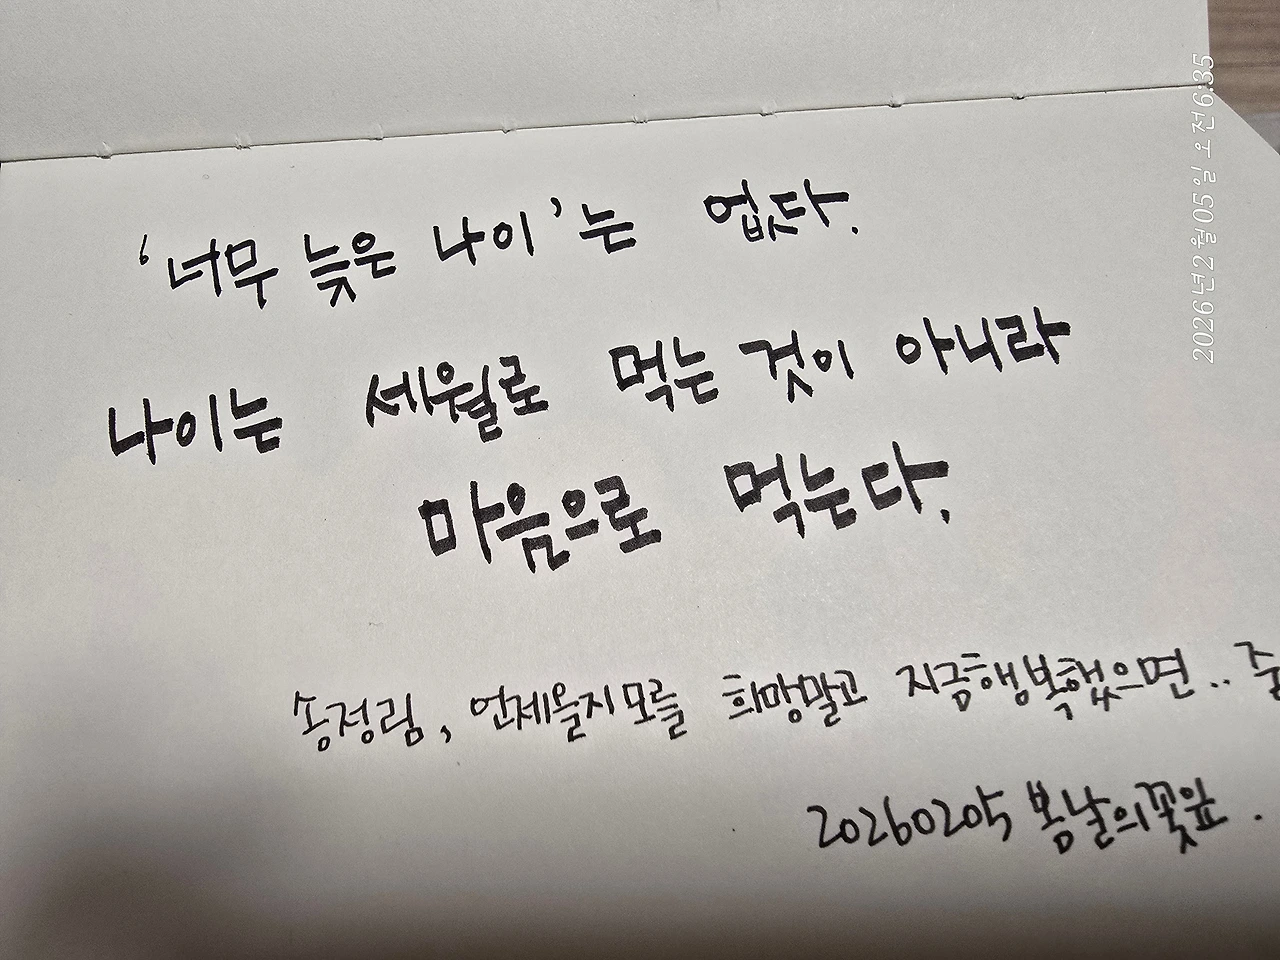 '너무 늦은 나이'는 없다.
나이는 세월로 먹는 것이 아니라
마음으로 먹는다.
송정림, 언제올지모를 희망말고 지금행복했으면.. 중
20260205 봄날의꽃잎.
2026년 2월 05일 오전 6:35